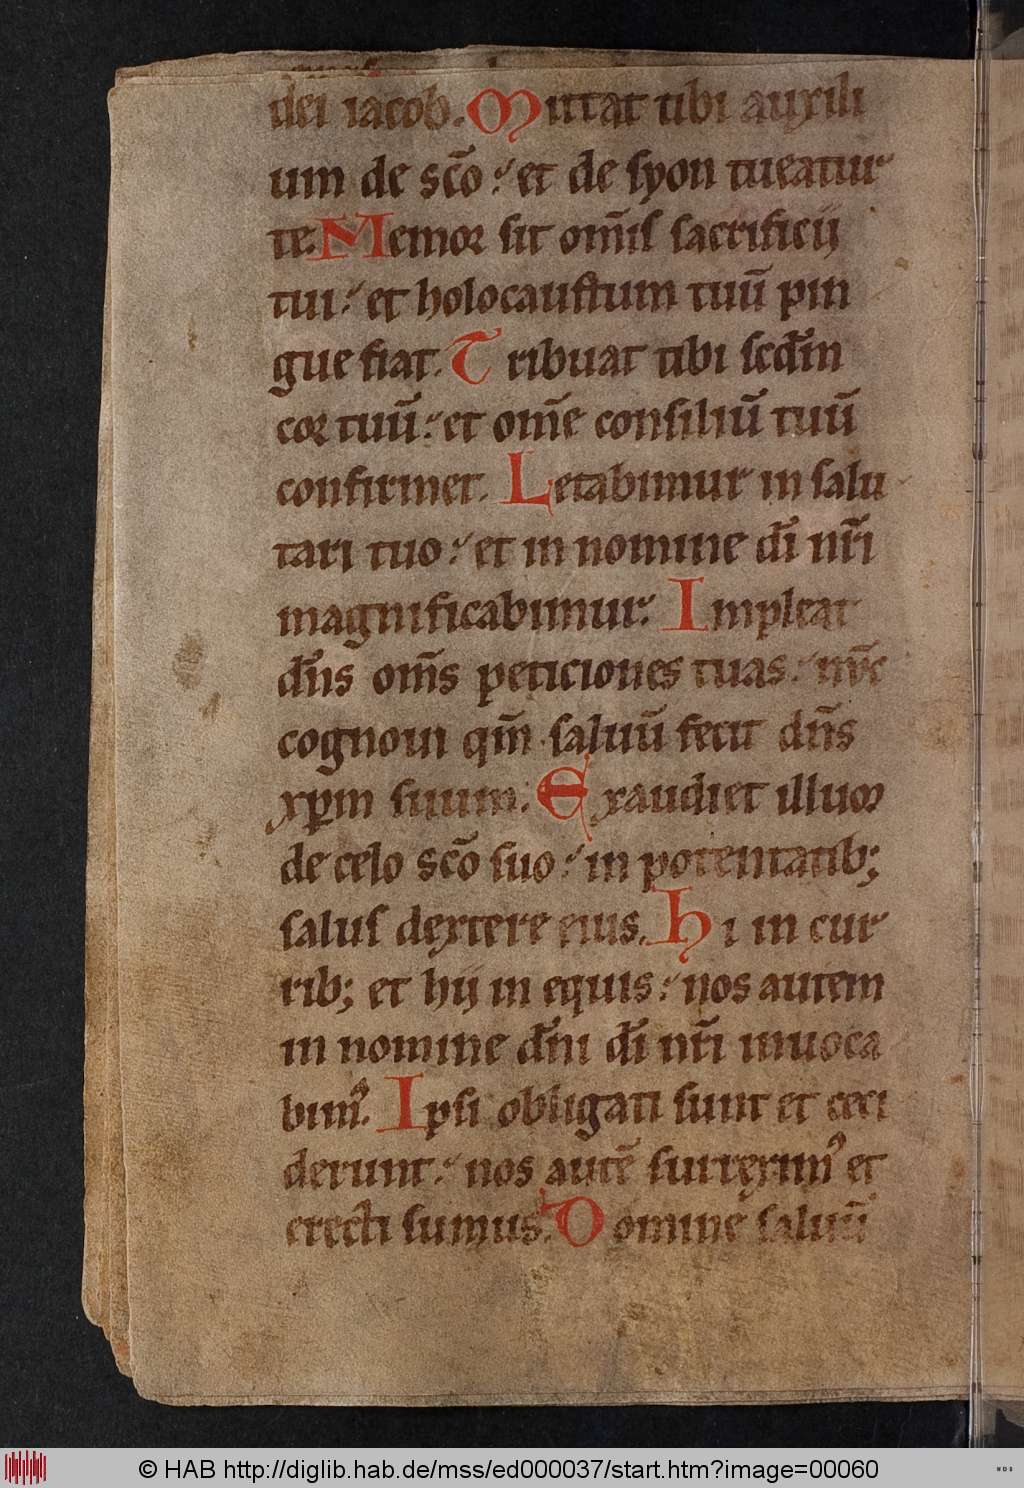 dei iacob. Mittat tibi auxili
um de sc̄o : et de syon tueatur
te. Memor sit om̄is sacrificij
tui : et holocaustum tuū pin
gue fiat. Tribuat tibi scd̄m
cor tuū : et om̄e consiliū tuū
confirmet. Letabimur in salu
tari tuo : et in nomine dī nr̄i
magnificabimur. Impleat
dn̄s om̄s peticiones tuas : nūc
cognoui qm̄ saluū fecit dn̄s
xp̄m suum. Exaudiet illuō
de celo sc̄o suo : in potentatib;
salus dextere eius. Hi in cur
rib; et hij in equis : nos autem
in nomine dn̄i dī nr̄i inuoca
bimꝰ. Ipsi obligati sunt et ceci
derunt : nos autē surreximꝰ et
erecti sumus. Domine saluū
© HAB http://diglib.hab.de/mss/ed000037/start.htm?image=00060